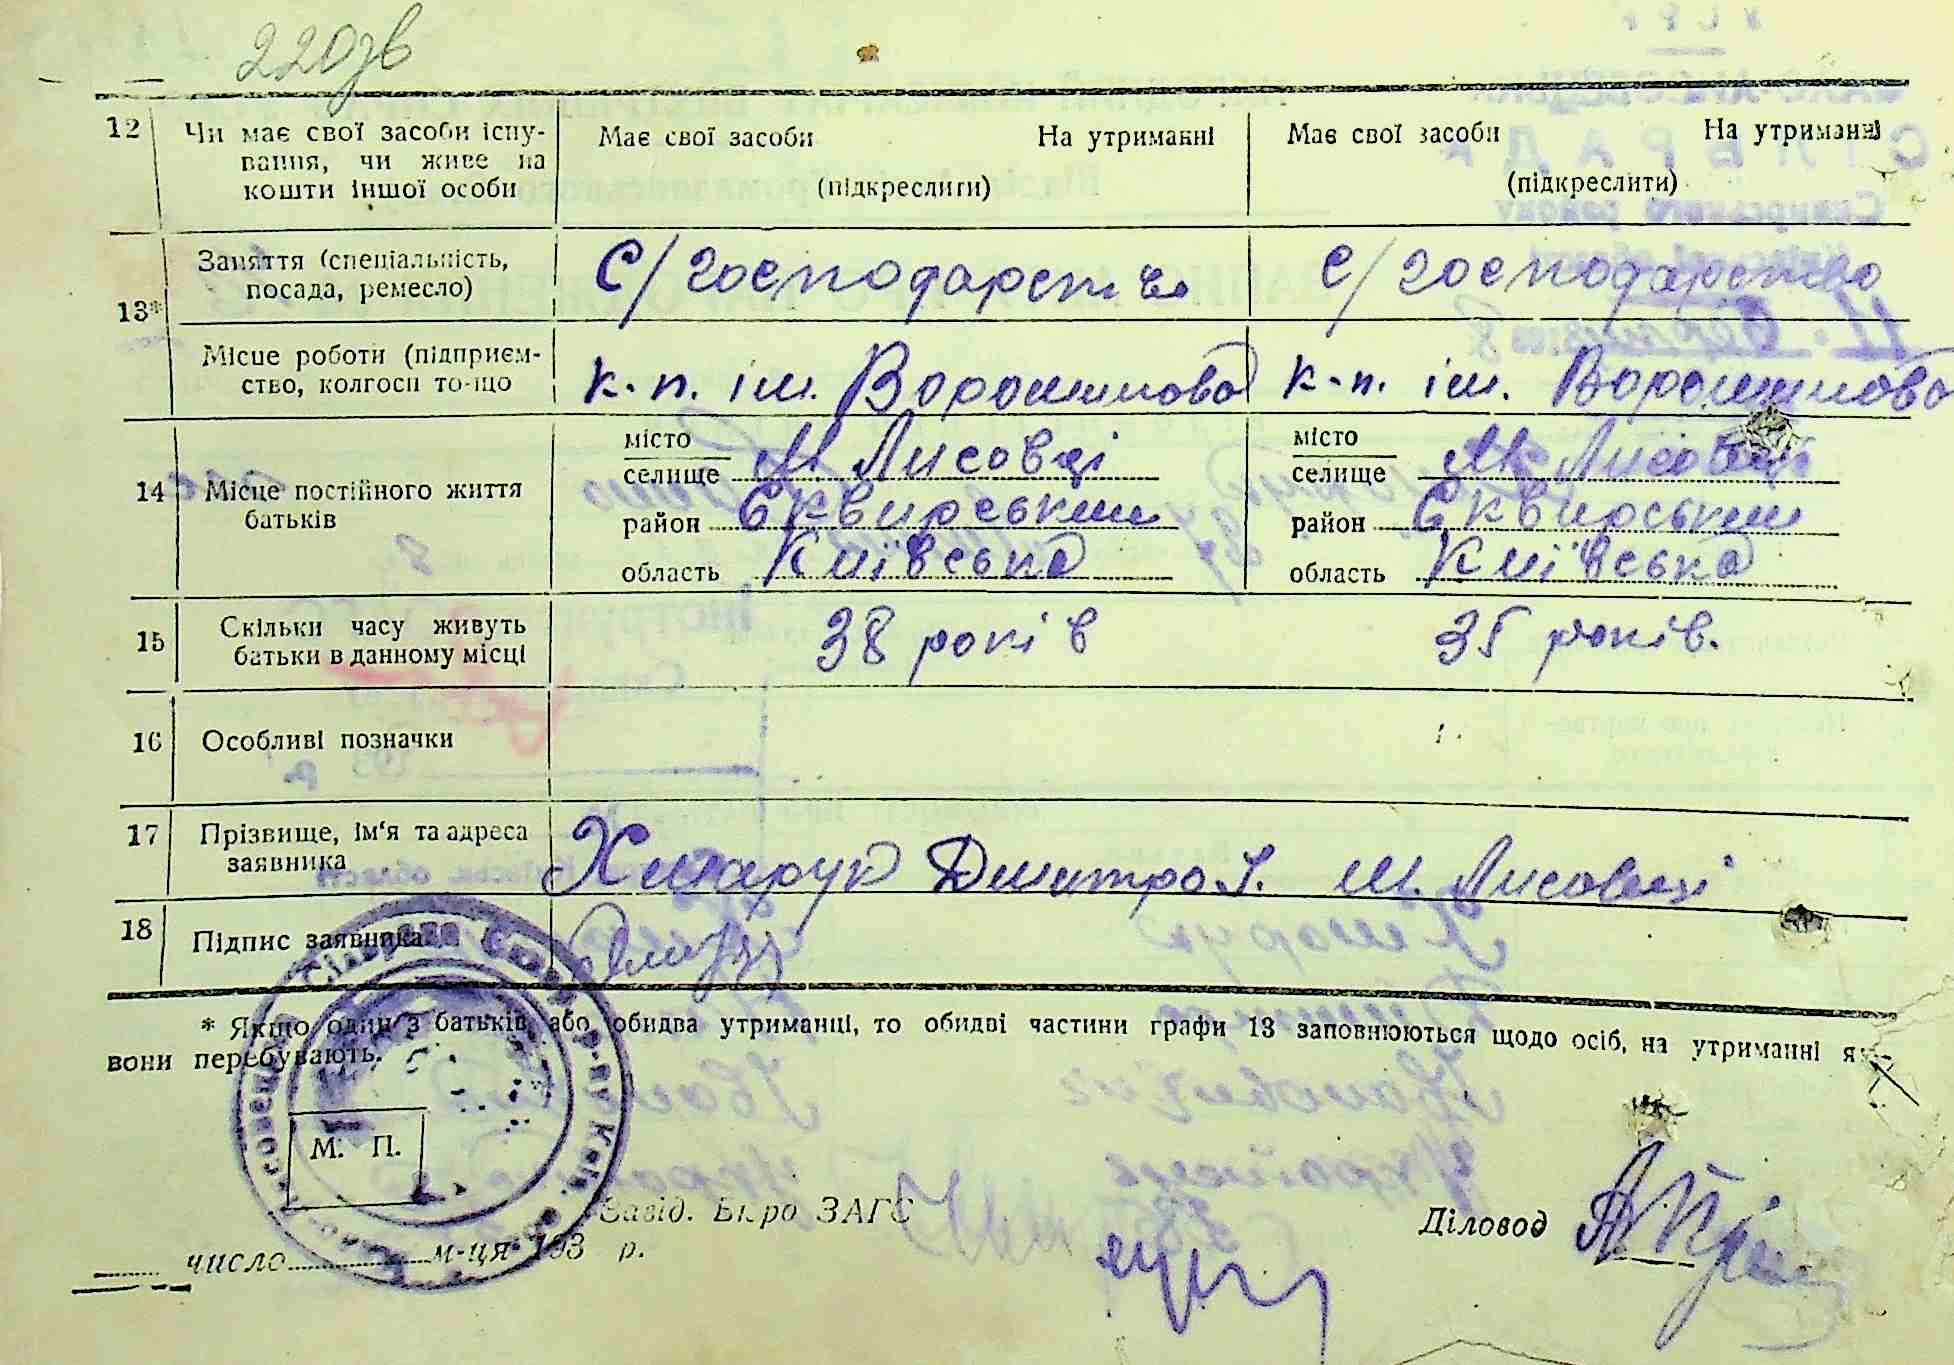 220зв
12 Чи має свої засоби існу-
вання, чи живе на
кошти іншої особи
Має свої засоби На утриманні
(підкреслити)
Має свої засоби На утриманні
(підкреслити)
13*
Заняття (спеціальність,
посада, ремесло)
С/господарство
С/господарство
Місце роботи (підприєм-
ство, колгосп то-що
к-п. ім. Ворошилова
к-п. ім. Ворошилова
14 Місце постійного життя
батьків
місто
селище М Лисовці
район Сквирський
область Київська
місто
селище М Лисовці
район Сквирський
область Київська
15 Скільки часу живуть
батьки в данному місці
38 років
35 років.
16 Особливі позначки
17 Прізвище, ім'я та адреса
заявника
Дмитро І. М. Лисовці
18 Підпис заявника
* Якщо один з батьків, або обидва утриманці, то обидві частини графи 13 заповнюються щодо осіб, на утриманні я
вони перебувають.
М. П.
Завід. Бюро ЗАГС
Діловод
число м-ця 193 р.